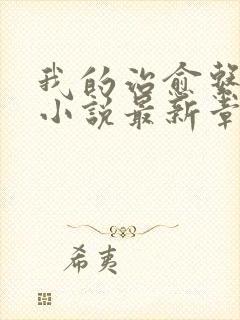 我的治愈繫
小說最新章
希夷